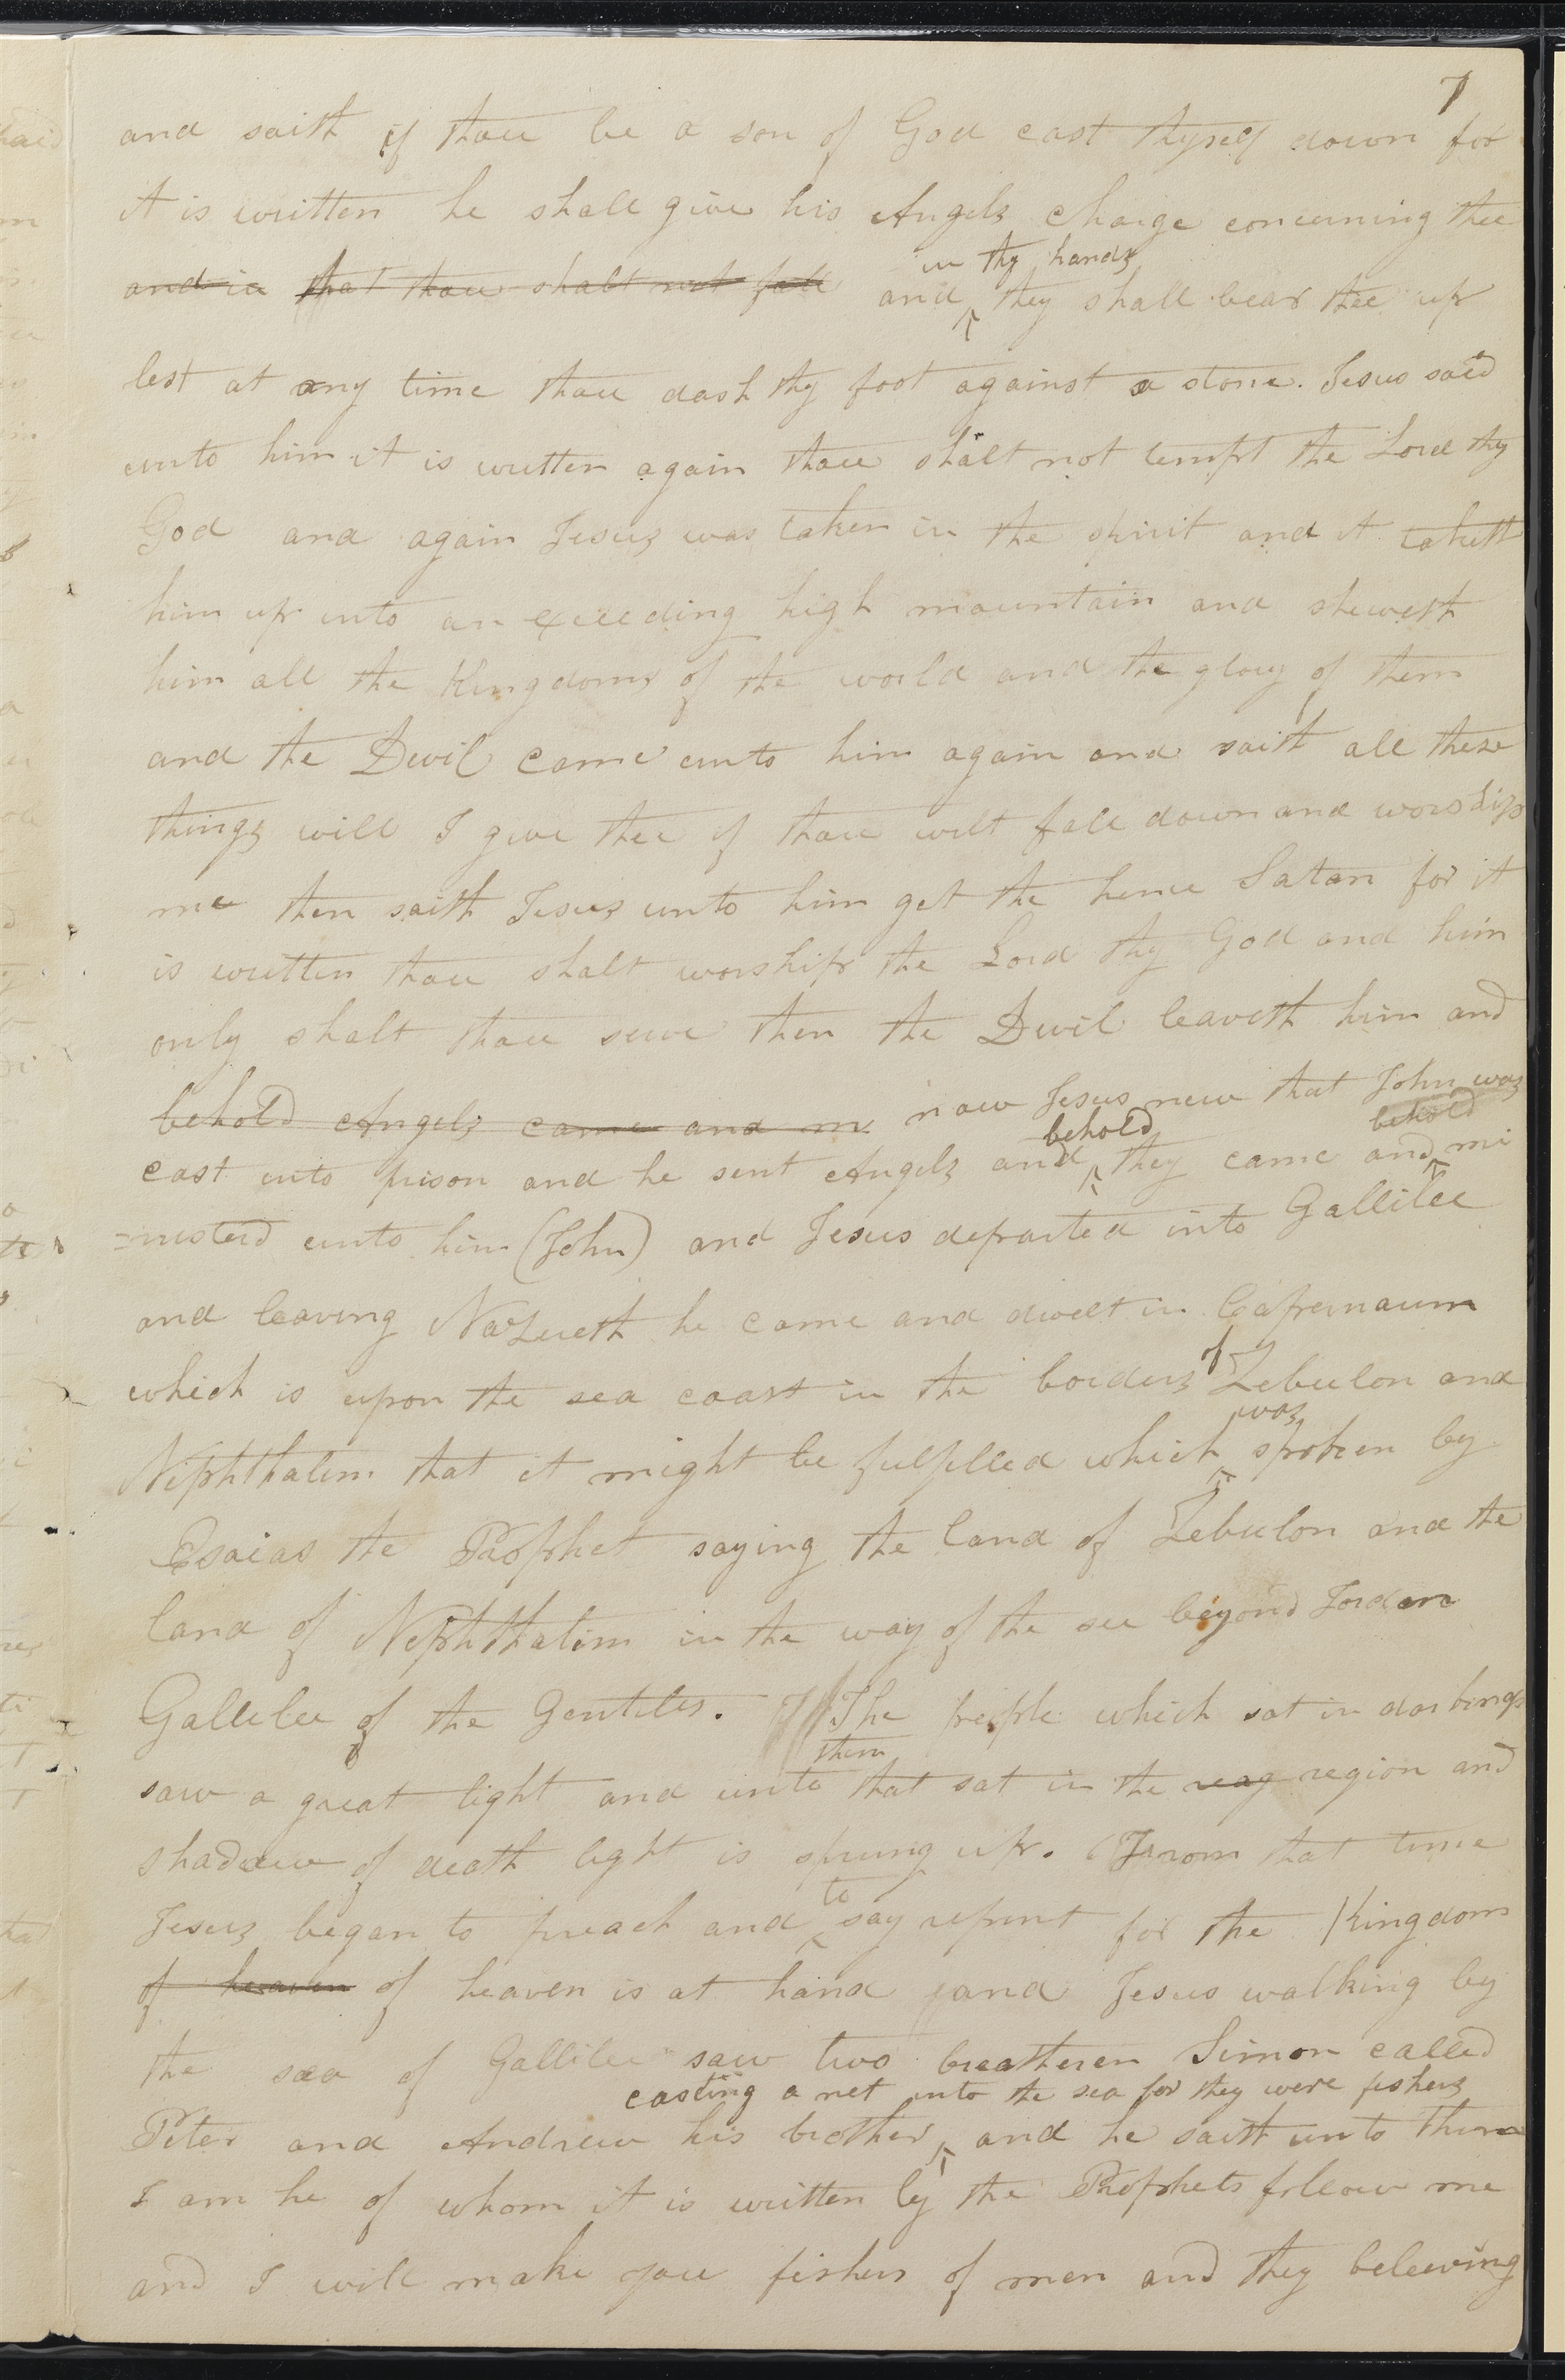 7
and saith if thou be a son of God cast thyself down for
it is written he shall give his Angels charge concerning thee
in thy hands
and in that thou shalt not fall and they shall bear thee up
lest at any time thou dash thy foot against a stone. Jesus said
unto him it is written again thou shalt not tempt the Lord thy
God and again Jesus was taken in the spirit and it taketh
him up into an exceeding high mountain and sheweth
him all the Kingdoms of the world and the glory of them
and the Devil came unto him again and saith all these
things will I give thee if thou wilt fall down and worship
me then saith Jesus unto him get the hence Satan for it
is written thou shalt worship the Lord thy God and him
only shalt thou serve then the Devil leaveth him and
behold Angels came and m now Jesus new that John was
behold behold
cast into prison and he sent Angels and they came and mi
=nisterd unto him (John) and Jesus departed into Gallilee
and leaving Nazereth he came and dwelt in Capernaum
which is upon the sea coast in the borders of Zebulon and
was
Niphthalim that it might be fulfilled which spoken by
Esaias the Prophet saying the land of Zebulon and the
land of Nephthalim in the way of the see beyond Jordan
Gallilee of the Gentiles. The people which sat in darkness
them
saw a great light and unto that sat in the reag region and
shadow of death light is sprung up. From that time
to
Jesus began to preach and say repent for the Kingdom
of heaven of heaven is at hand and Jesus walking by
the sea of Gallilee saw two breatheren Simon called
casting a net into the sea for they were fishers
Peter and Andrew his brother and he saith unto them
I am he of whom it is written by the Prophets follow me
and I will make you fishers of men and they beleeving